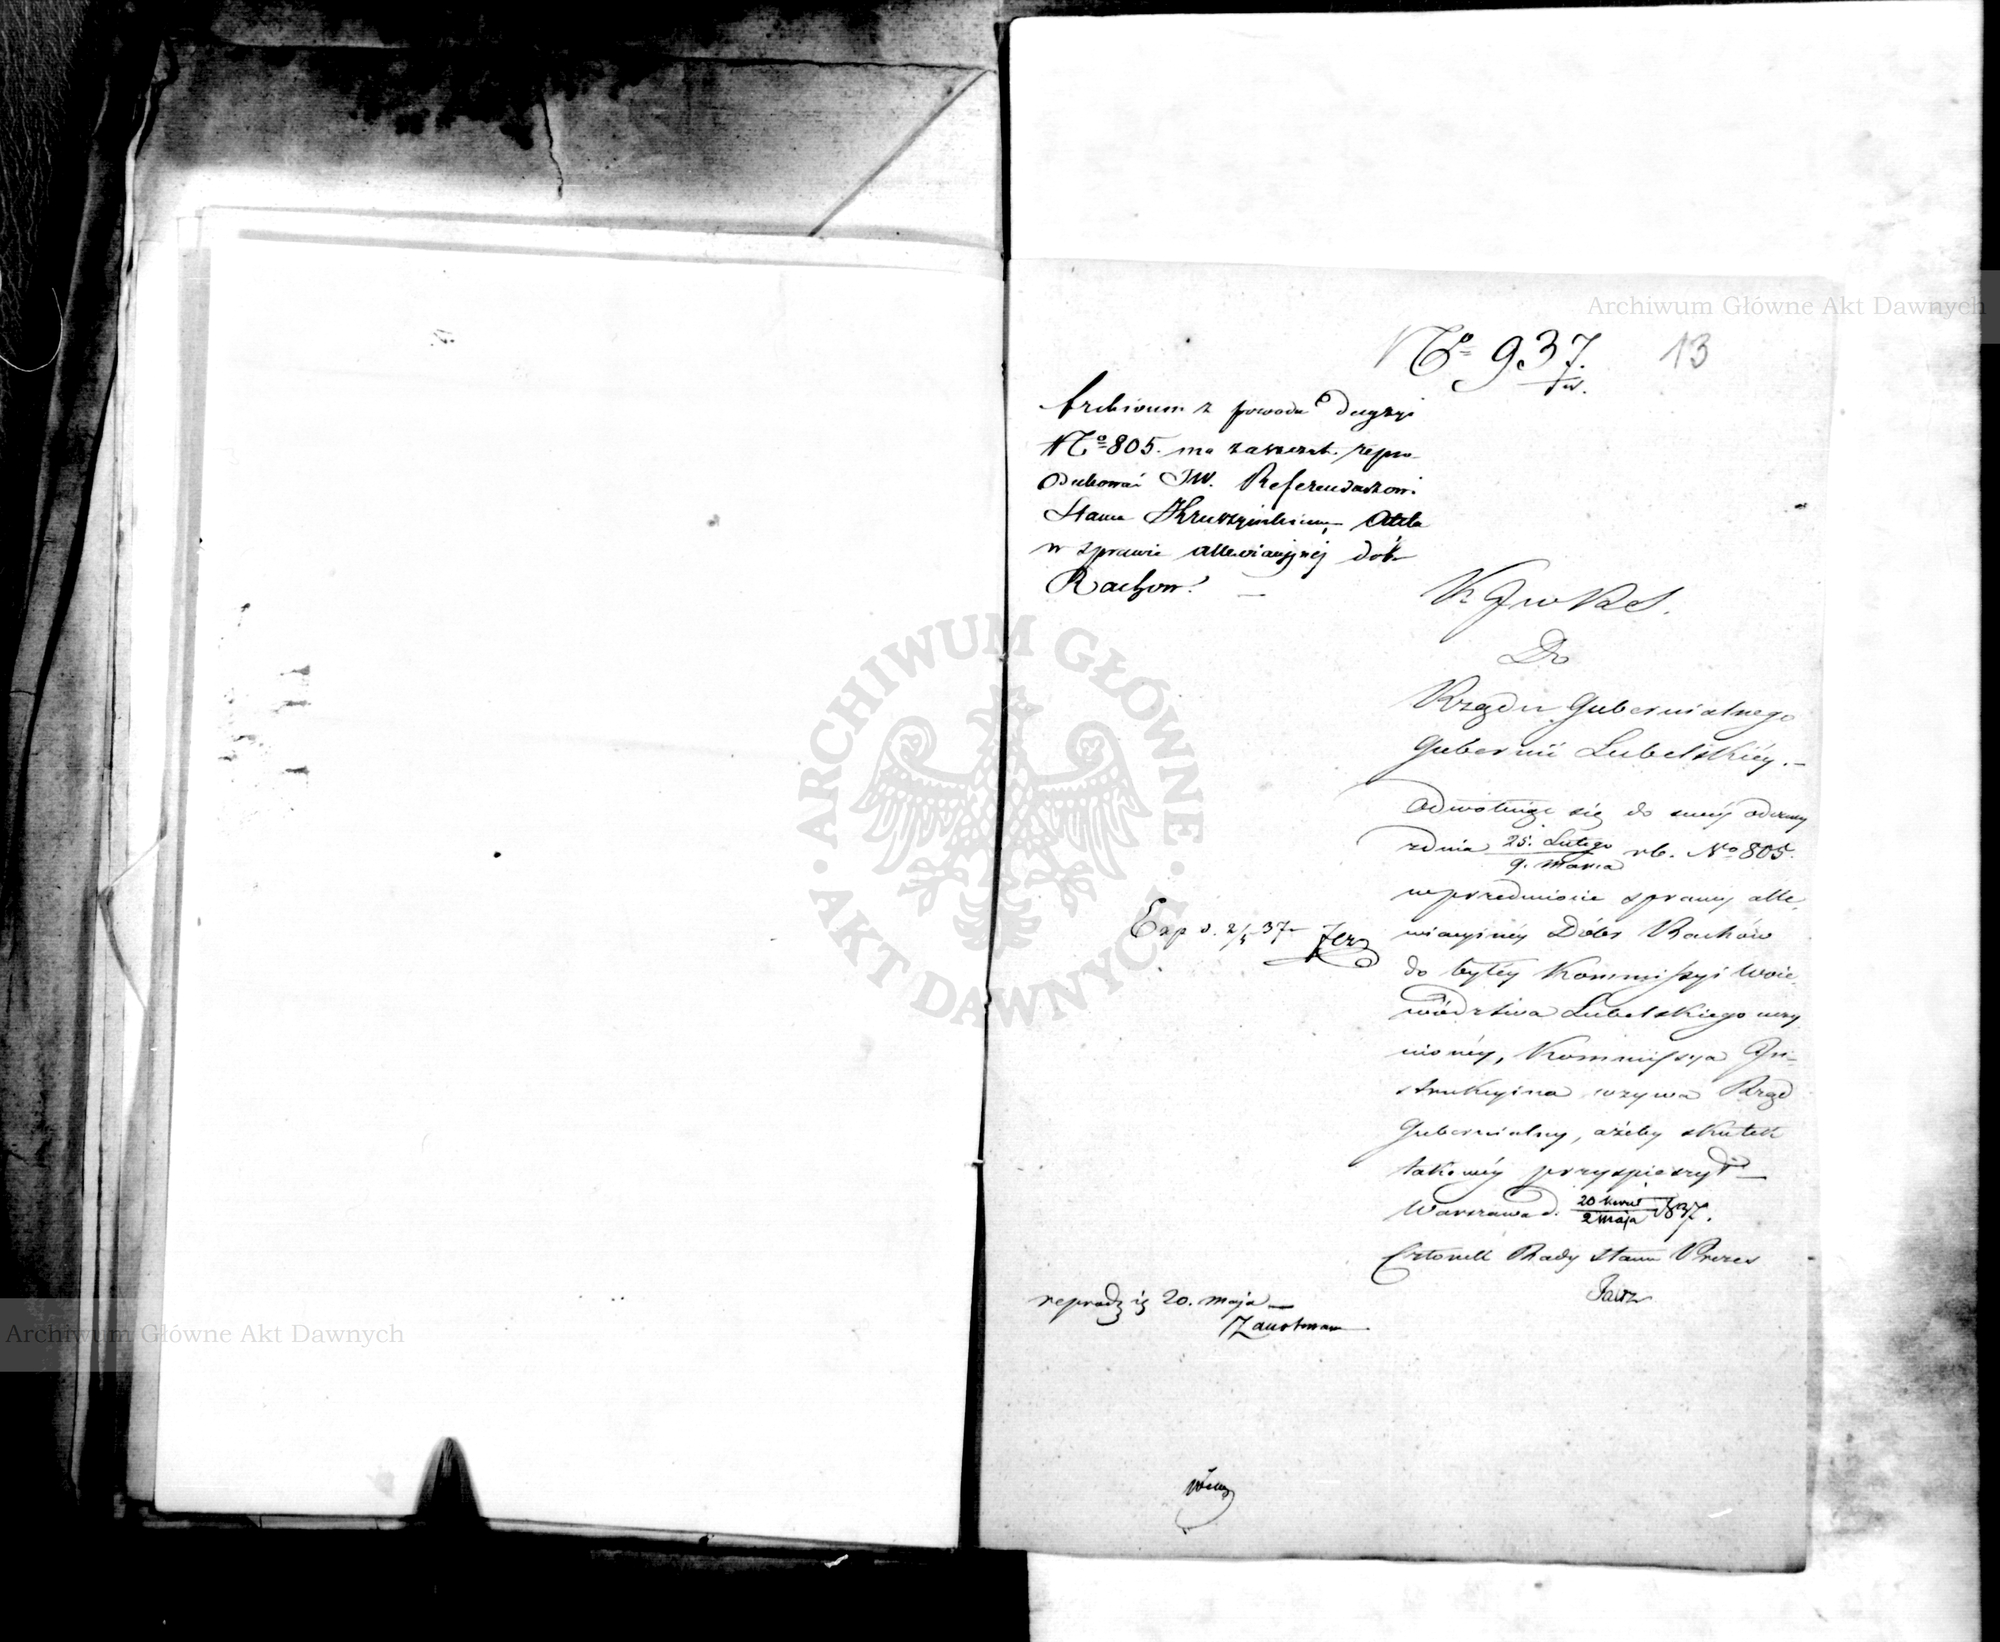 Archiwum Główne Akt Dawnych
No 937.
13
Archiwum z powodu Decyzyi
No 805. ma zawezwać repro-
dukować JW. Referendarzowi
Stanu Akta
w sprawie allewiacyjnej dóbr
Rachow.
Do
Rządu Gubernialnego
Gubernii Lubelskiéy.
Odwołuiąc się do swéy odezwy
z dnia 25. Lutego / 9. Marca r. b. No 805.
w przedmiocie sprawy alle-
wiacyinéy Dóbr Rachów
do byłéy Kommissyi Woie-
wództwa Lubelskiego uczy
nionéy, Kommissya In-
strukcyina wzywa Rząd
Gubernialny, ażeby skutek
takowéy przyspieszył
Warszawa d. 20 kwiet / 2 Maja 1837.
Członek Rady Stanu Prezes
Exp d. 2/5 37
20. Maja
ARCHIWUM GŁÓWNE
AKT DAWNYCH
Archiwum Główne Akt Dawnych